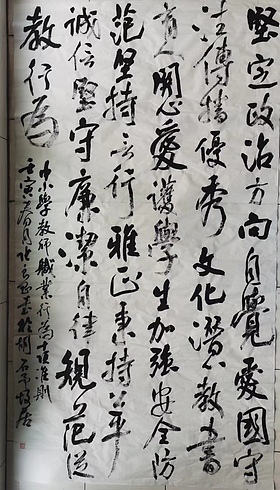 坚定政治方向自觉爱国守
法传播优秀文化潜心教书
育人关心爱護學生加强安全防
范坚持言行雅正秉持公平
诚信坚守廉潔自律规范从
教行為
中小學教师職業行為十项准则
壬寅春月